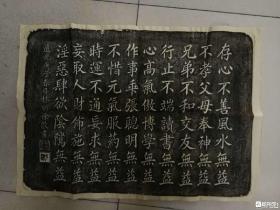 存心不善風水無益
不孝父母奉神無益
兄弟不和交友無益
行止不端讀書無益
心高氣傲博學無益
作事乖張聰明無益
不惜元氣服藥無益
時運不通妄求無益
妄取人財佈施無益
淫惡肆欲陰騭無益
道光